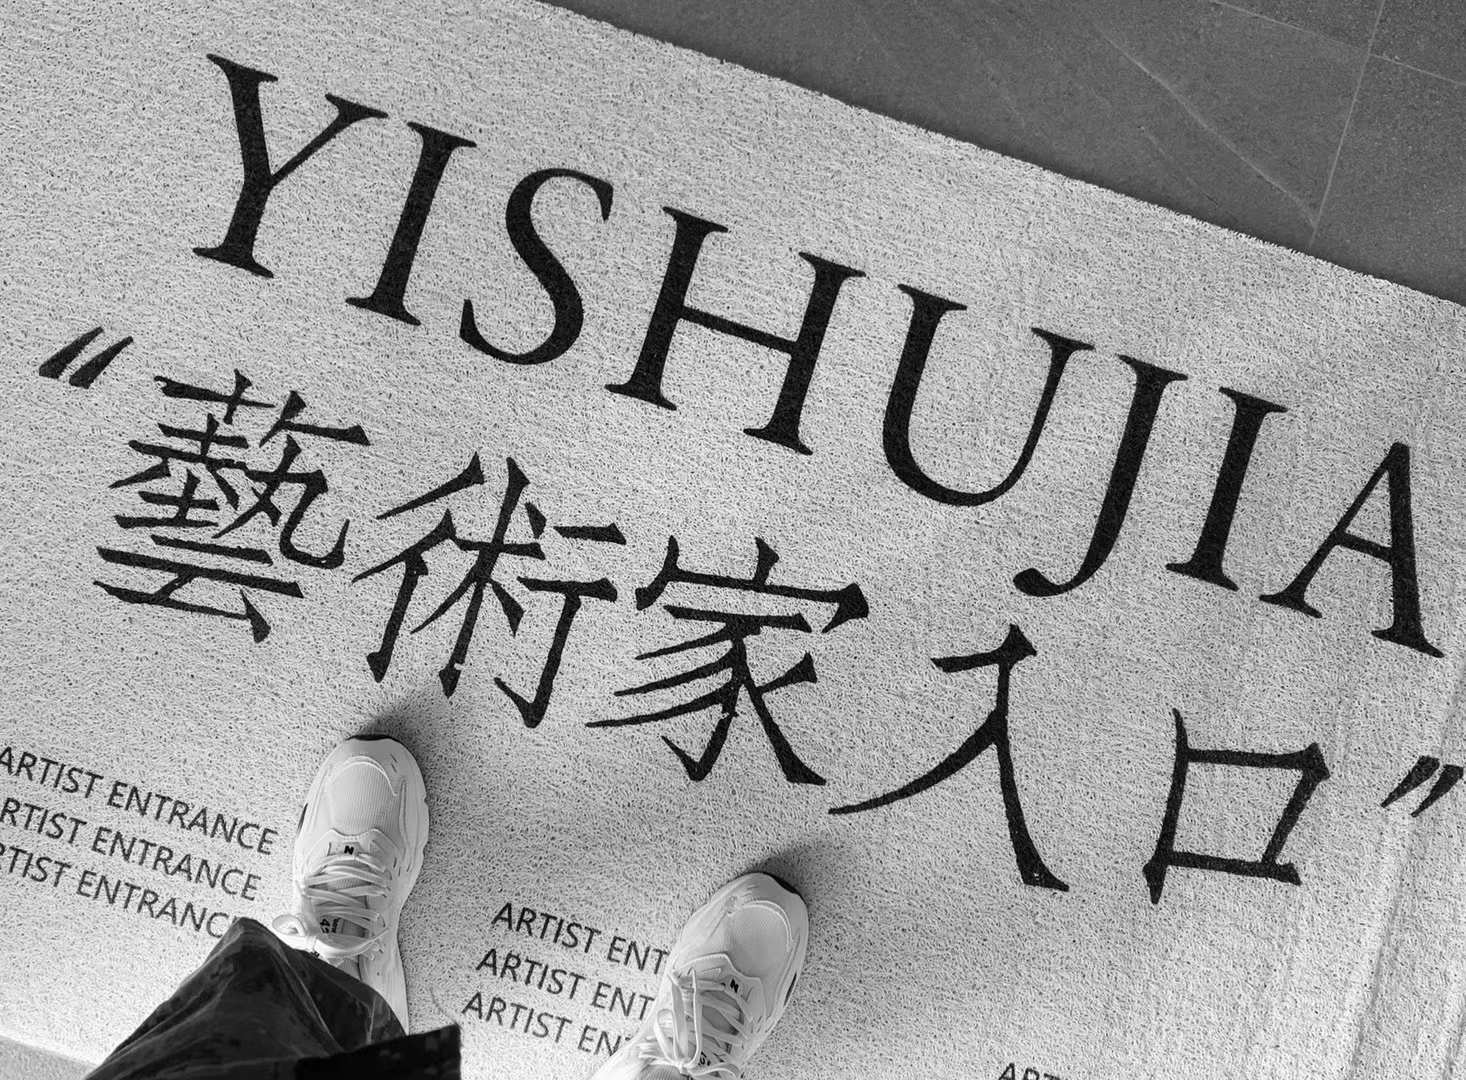 YISHUJIA
“藝術家入口”
ARTIST ENTRANCE
ARTIST ENTRANCE
ARTIST ENTRANCE
ARTIST ENT
ARTIST ENT
ARTIST EN
N
N